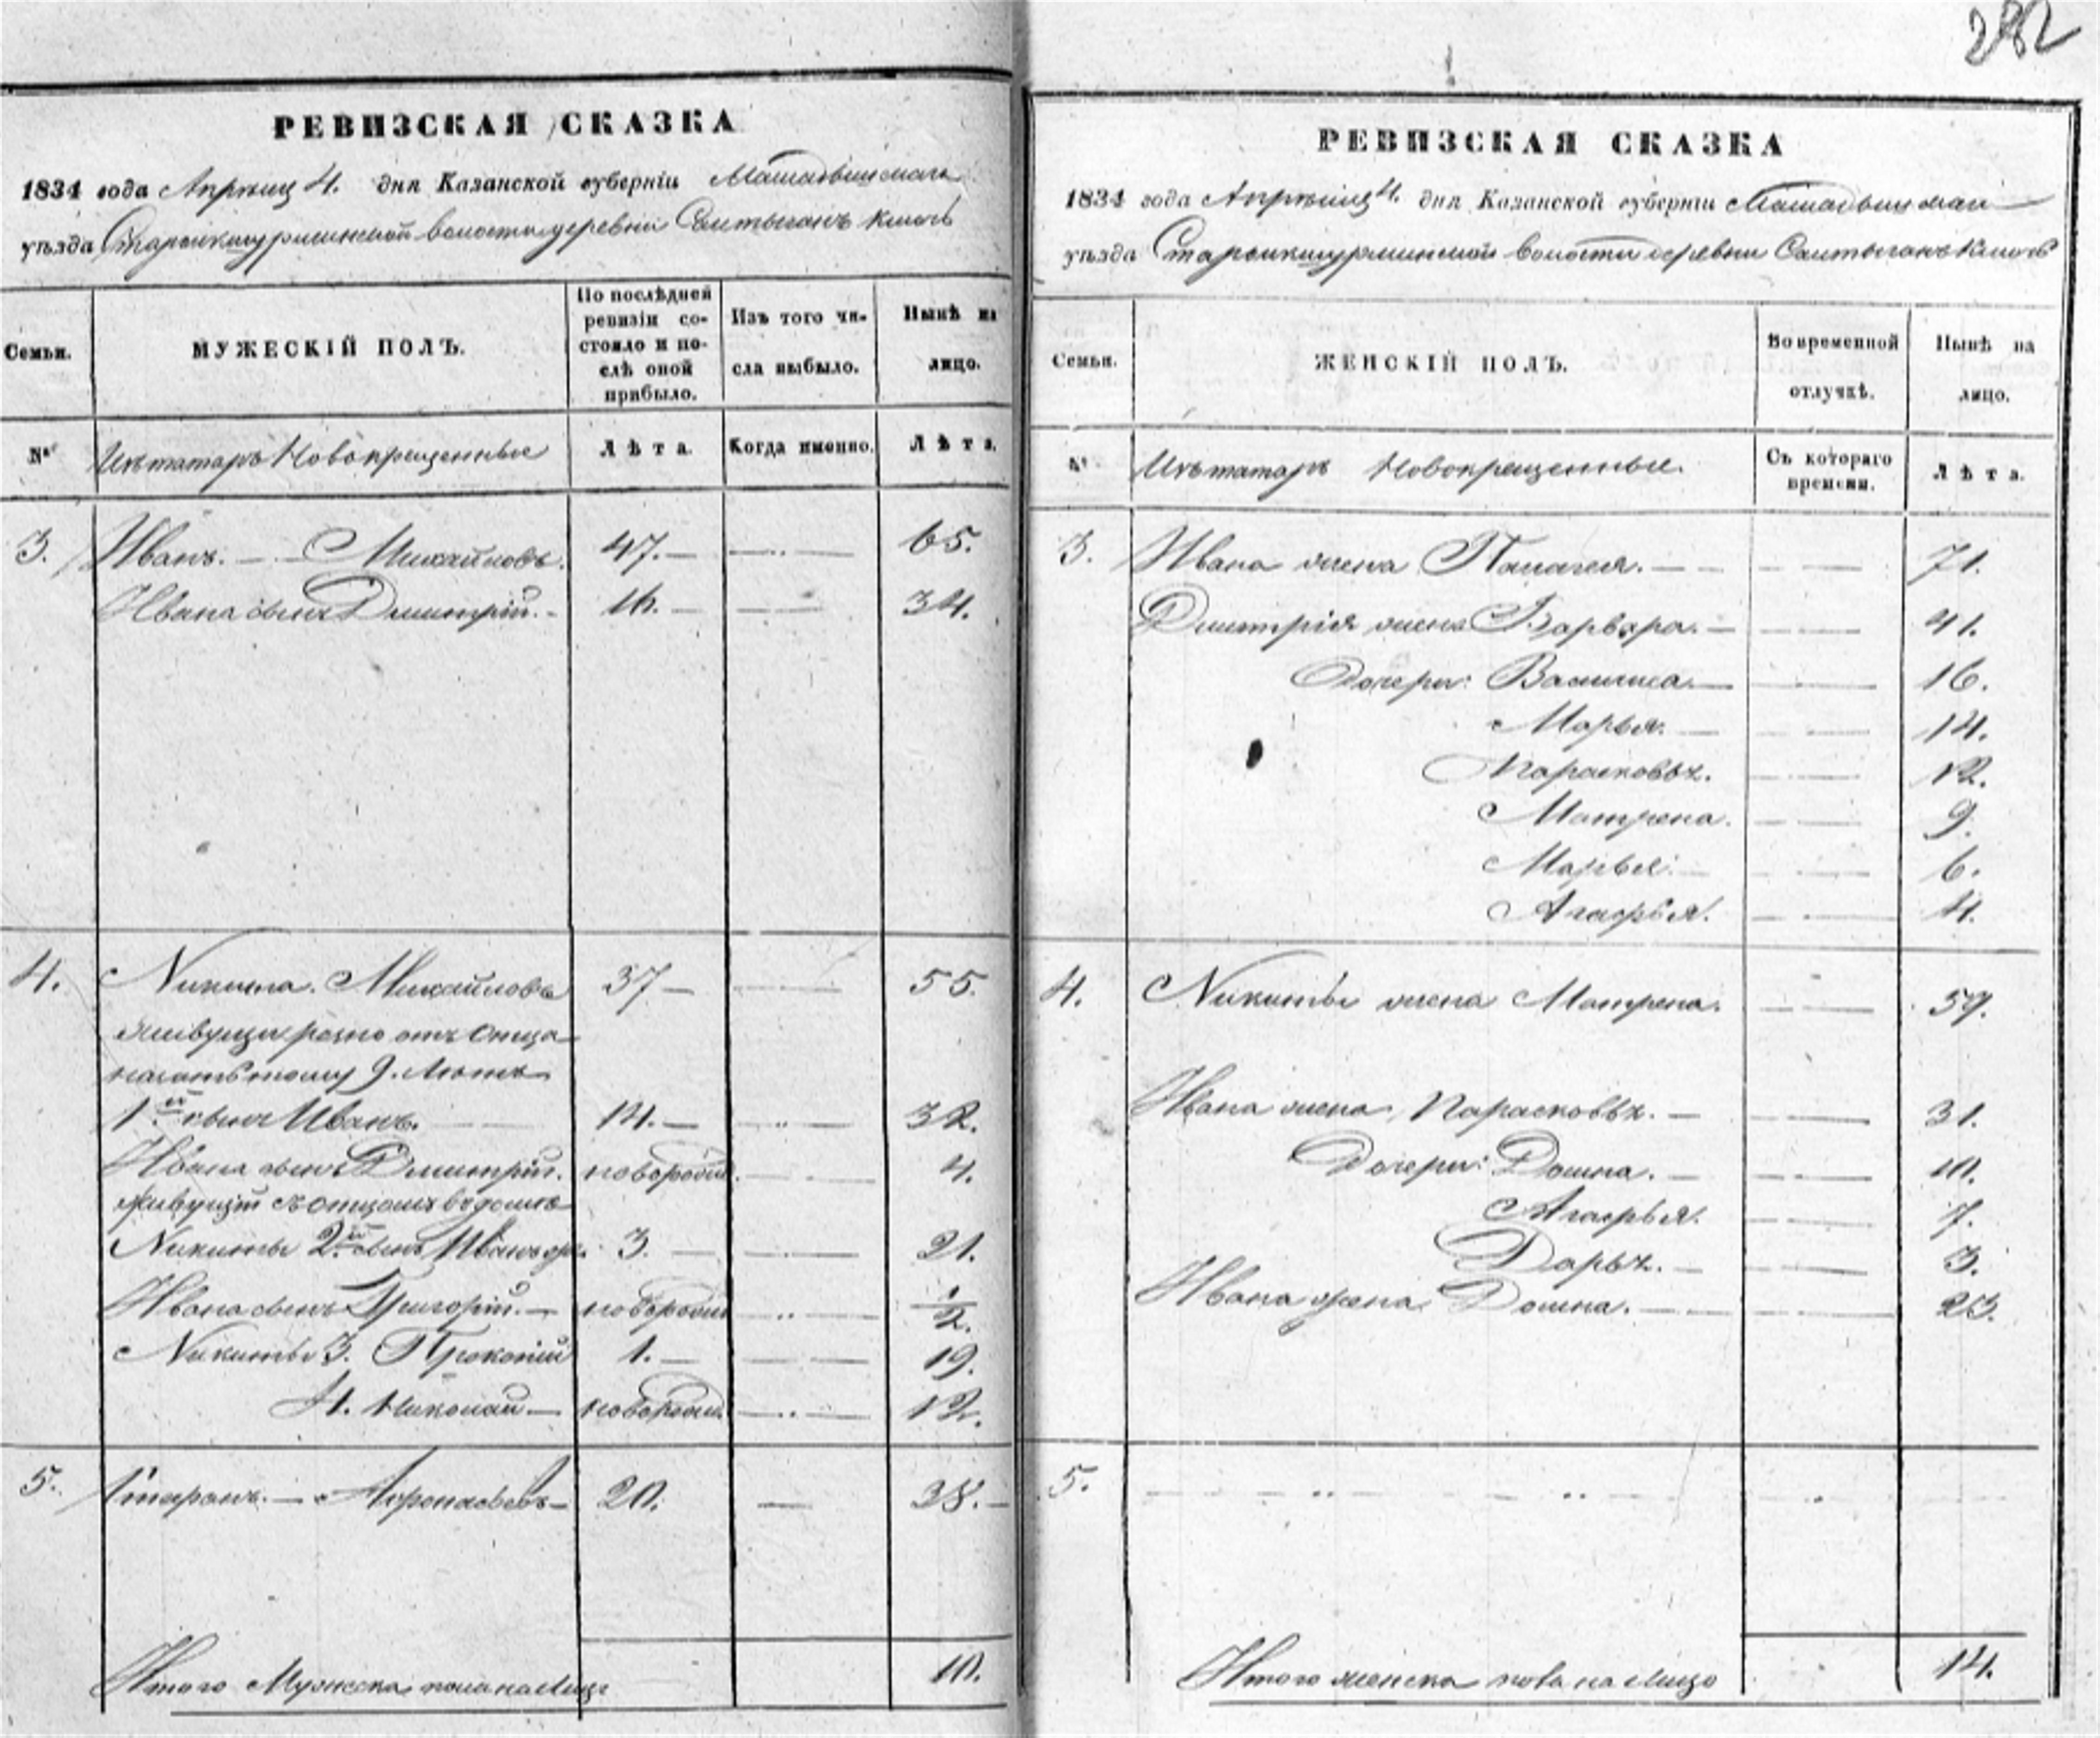 282
РЕВИЗСКАЯ СКАЗКА
1834 года Апрѣля 4. дня Казанской губерніи Мамадышскаго
уѣзда Старойкшурминской волости деревни Саитыганъ Ключъ
Семьи.
МУЖЕСКІЙ ПОЛЪ.
По послѣдней ревизіи состояло и послѣ оной прибыло.
Изъ того числа выбыло.
Нынѣ на лицо.
№
Изъ татаръ Новокрещенные
Лѣта.
Когда именно.
Лѣта.
3. Иванъ. — Михайловъ. 47. — 65.
Ивана сынъ Дмитрій. 16. — 34.
4. Никита. Михайловъ 37 — 55.
живущи розно отъ отца
назадъ тому 9. Лѣтъ
1й сынъ Иванъ. 14. — 32.
Ивана сынъ Дмитрій. новорожд. 4.
живущій съ отцомъ въ домѣ
Никиты 2й сынъ Иванъ же. 3. — 21.
Ивана сынъ Григорій. — новорожд. 1/2.
Никиты 3. Прокопій 1. — 19.
4. Николай — новорожд. 12.
5. — Афонасьевъ — 20. — 38. —
Итого Мужеска пола на Лицо 10.
РЕВИЗСКАЯ СКАЗКА
1834 года Апрѣля 4. дня Казанской губерніи Мамадышскаго
уѣзда Старойкшурминской волости деревни Саитыганъ Ключъ
Семьи.
ЖЕНСКІЙ ПОЛЪ.
Во временной отлучкѣ.
Нынѣ на лицо.
№
Изъ татаръ Новокрещенные.
Съ котораго времени.
Лѣта.
3. Ивана жена Палагея. — 71.
Дмитрія жена Варвара. — 41.
Дочери: Василиса. — 16.
Марья. — 14.
Парасковья. 12.
Матрена. 9.
Марья. 6.
Агафья. 4.
4. Никиты жена Матрена. 59.
Ивана жена Парасковья. — 31.
Дочери: Домна. — 10.
Агафья. 7.
Дарья. — 3.
Ивана жена Домна. — 23.
5.
Итого женска пола на Лицо 14.